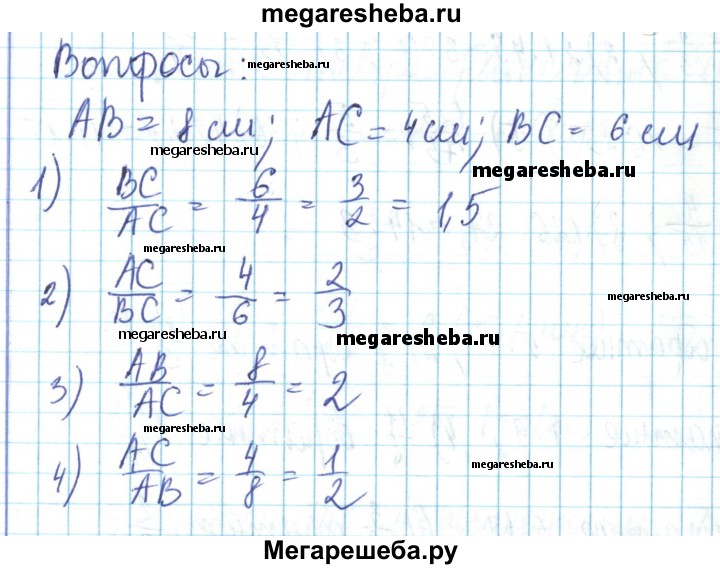 megaresheba.ru
Вопросы: megaresheba.ru
AB = 8 см; AC = 4 см; BC = 6 см
megaresheba.ru
megaresheba.ru
1) BC/AC = 6/4 = 3/2 = 1,5
megaresheba.ru
2) AC/BC = 4/6 = 2/3
megaresheba.ru
megaresheba.ru
megaresheba.ru
3) AB/AC = 8/4 = 2
megaresheba.ru
4) AC/AB = 4/8 = 1/2
megaresheba.ru
Мегарешеба.ру